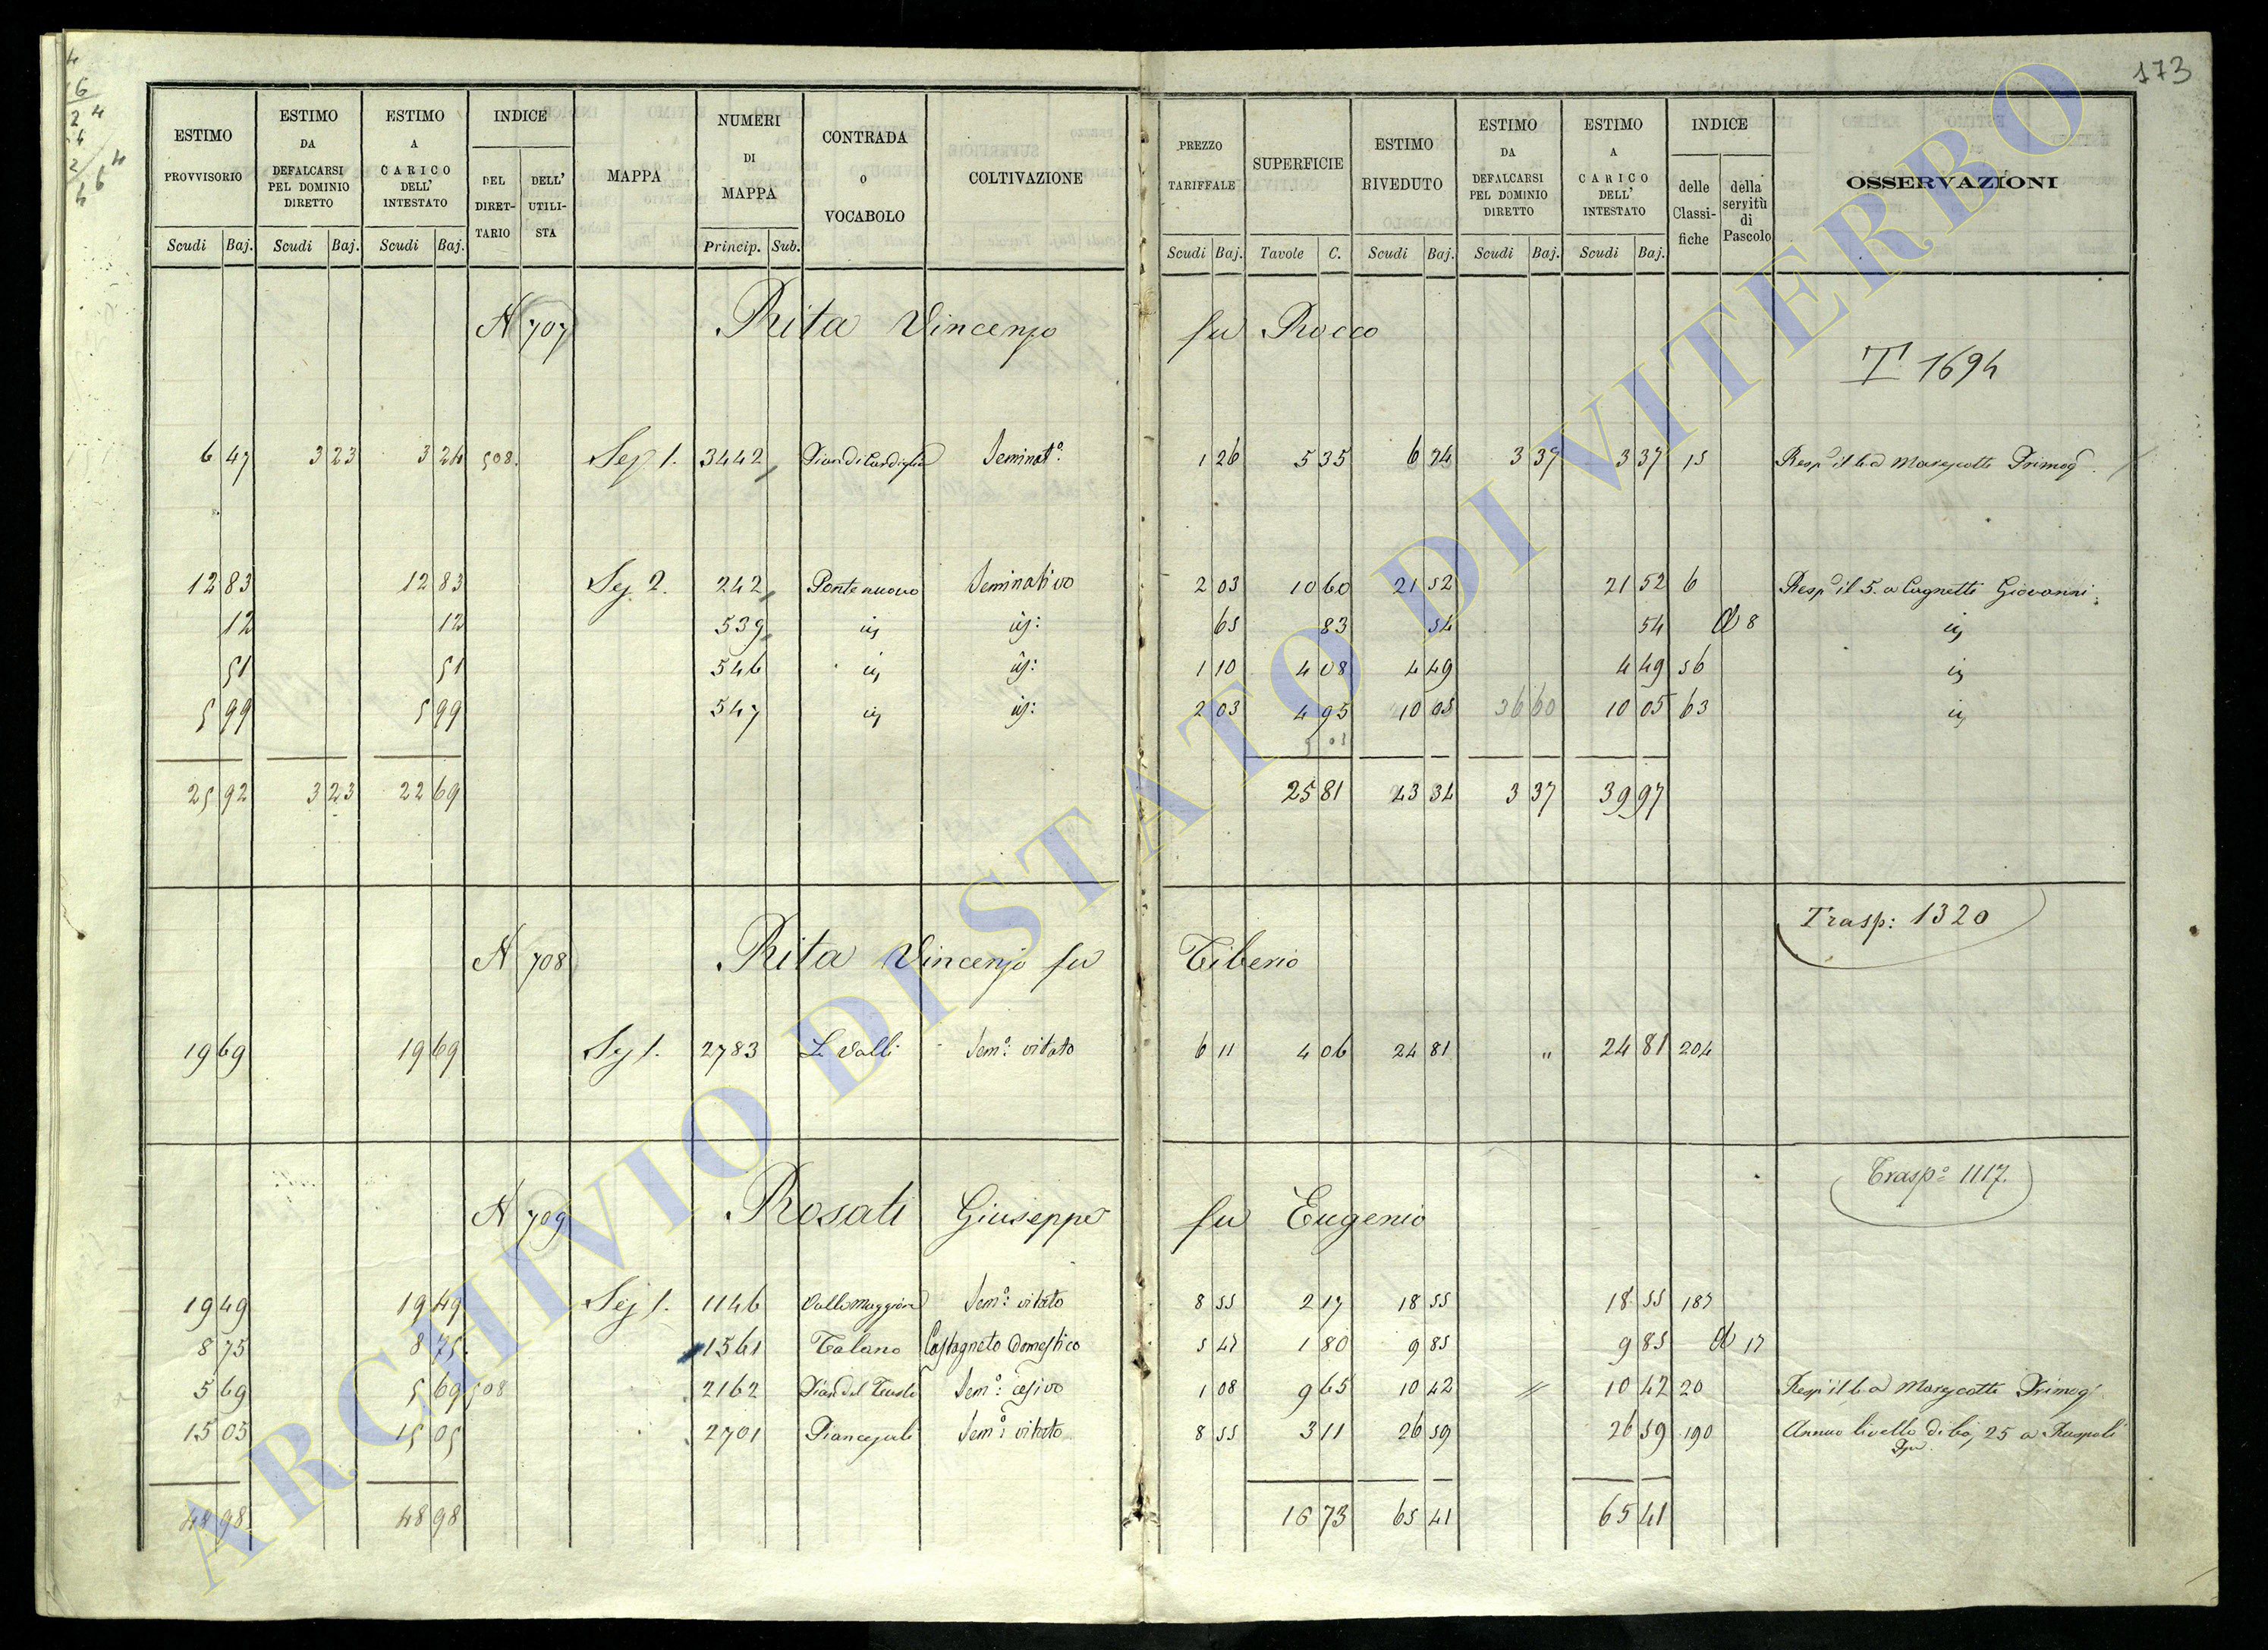 173
ESTIMO PROVVISORIO Scudi Baj. ESTIMO DA DEFALCARSI PEL DOMINIO DIRETTO Scudi Baj. ESTIMO A CARICO DELL' INTESTATO Scudi Baj. INDICE DEL DIRET-TARIO DELL' UTILI-STA MAPPA NUMERI DI MAPPA Princip. Sub. CONTRADA O VOCABOLO COLTIVAZIONE PREZZO TARIFFALE Scudi Baj. SUPERFICIE Tavole C. ESTIMO RIVEDUTO Scudi Baj. ESTIMO DA DEFALCARSI PEL DOMINIO DIRETTO Scudi Baj. ESTIMO A CARICO DELL' INTESTATO Scudi Baj. INDICE delle Classi-fiche della servitù di Pascolo OSSERVAZIONI
N 707 Rita Vincenzo fu Rocco
T. 1694
6 47 3 23 3 24 508. Sez 1. 3442 Seminat.o 1 26 5 35 6 74 3 37 3 37 15 Resp il 6 a Marescotti Primog
12 83 12 83 Sez 2. 242 Ponte nuovo Seminativo 2 03 10 60 21 52 21 52 6 Resp il 5. a Cagnetti Giovanni
12 12 539 id id: 65 83 54 54 A 8 id
51 51 546 id id: 1 10 4 08 4 49 4 49 56 id
5 99 5 99 547 id id: 2 03 4 95 10 05 36 60 10 05 63 id
25 92 3 23 22 69 25 81 43 34 3 37 39 97
Trasp: 1320
N 708 Rita Vincenzo fu Tiberio
19 69 19 69 Sez 1. 2783 Le Valli Sem.o: vitato 6 11 4 06 24 81 " 24 81 204
Trasp.o 1117.
N 709 Rosati Giuseppe fu Eugenio
19 49 19 49 Sez 1. 1146 Valle Maggiore Sem.o: vitato 8 55 2 17 18 55 18 55 187
8 75 8 75 1561 Talano Castagneto domestico 5 47 1 80 9 85 9 85 A 17
5 69 5 69 508 2162 Sem.o: cesivo 1 08 9 65 10 42 " 10 42 20 Resp il 6 a Marescotti Primog
15 05 15 05 2701 Sem.o: vitato 8 55 3 11 26 59 26 59 190 Annuo livello di 25 a Ruspoli
48 98 48 98 16 73 65 41 65 41
ARCHIVIO DI STATO DI VITERBO